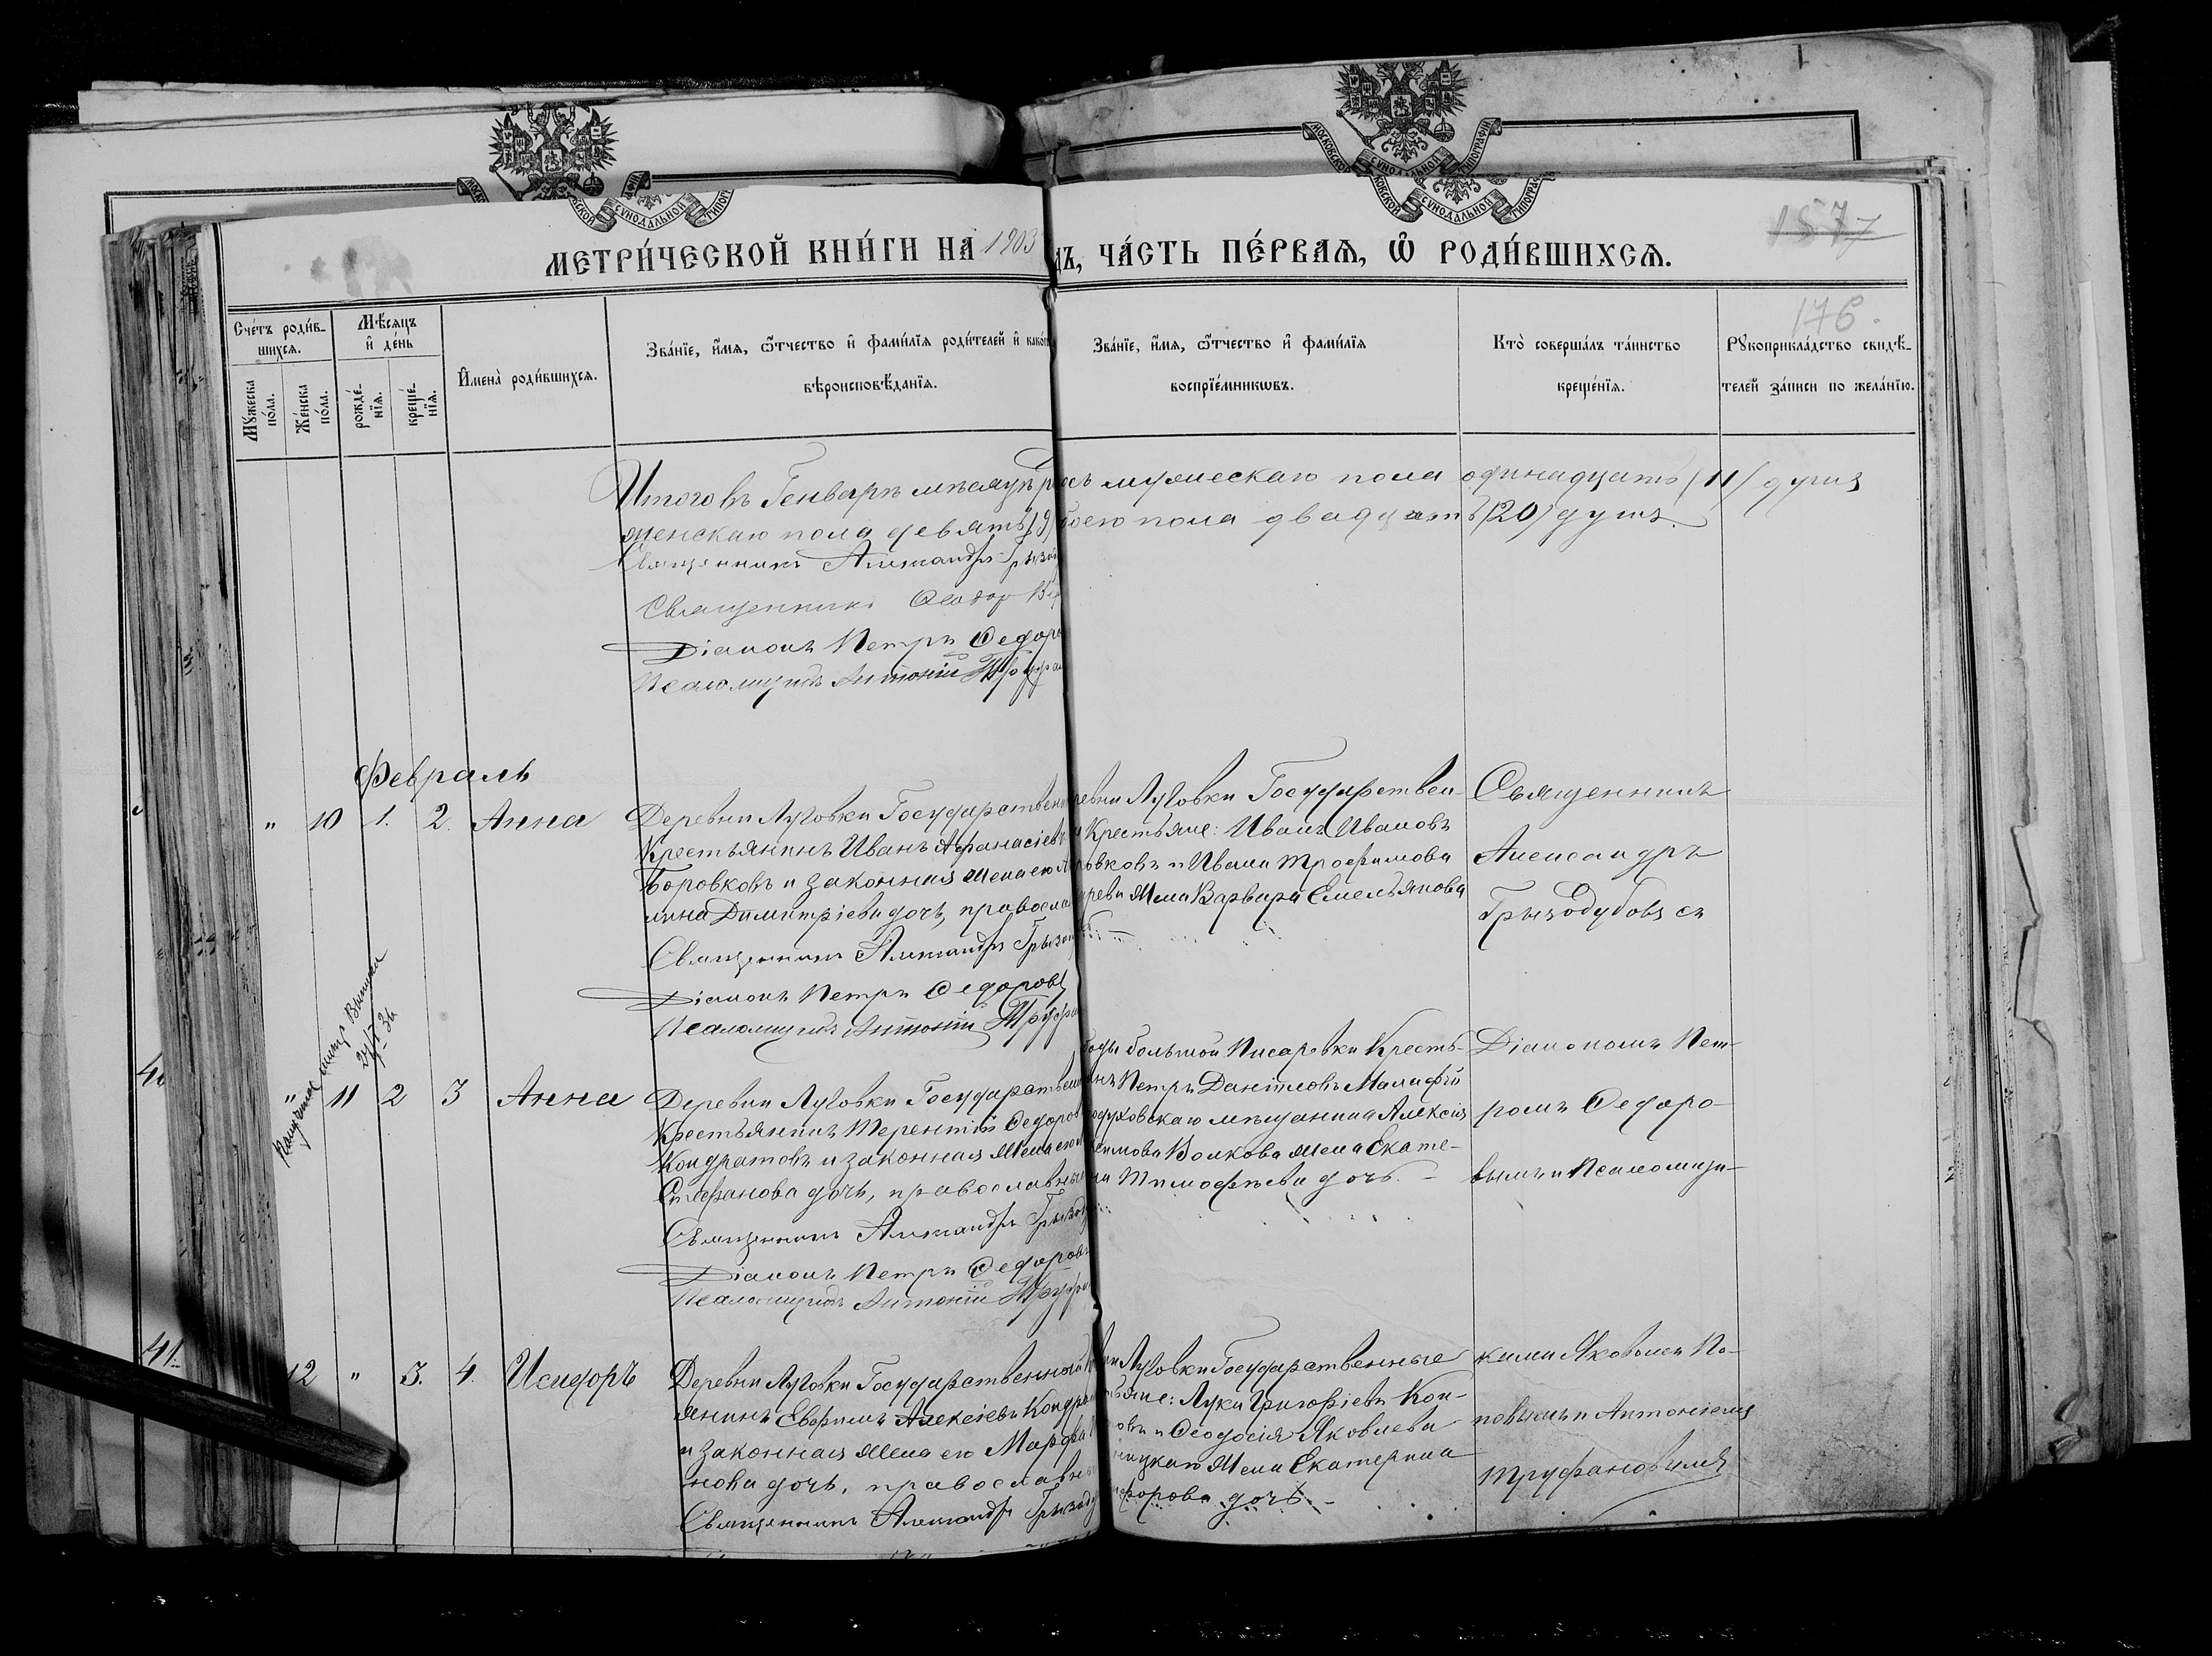 МОСКОВСКОЙ СѴНОДАЛЬНОЙ ТИПОГРАФІИ
МЕТРИ́ЧЕСКОЙ КНИ́ГИ НА 1903
ДЪ, ЧА́СТЬ ПЕ́РВАѦ, Ѽ РОДИ́ВШИХСѦ.
1577
176.
Сче́тъ роди́в-
шихсѧ.
Мꙋ́жеска по́ла.
Же́нска по́ла.
Мѣ́сѧцъ и҆ де́нь
рожде́-нїѧ.
креще́-нїѧ.
И҆мена̀ роди́вшихсѧ.
Зва́нїе, и҆́мѧ, ѻ҆́тчество и҆ фами́лїѧ роди́телей и҆ како́гѡ
вѣроисповѣ́данїѧ.
Зва́нїе, и҆́мѧ, ѻ҆́тчество и҆ фами́лїѧ
воспрїе́мникѡвъ.
Кто̀ соверша́лъ та́инство
креще́нїѧ.
Рꙋкоприкла́дство свидѣ́-
телей за́писи по жела́нїю.
Итого въ Генварѣ мѣсяцѣ
мужескаго пола одинадцать (11) душъ
женскаго пола девять (9)
боего пола двадцать (20) душъ.
Священникъ Александръ
Священникъ Ѳеодор
Діаконъ Петръ Ѳедоров
Псаломщикъ Антоній Труфан
Февраль
" 10 1. 2. Анна
Деревни Луговки Государствен
Крестьянинъ Иванъ Аѳанасіевъ
Боровковъ и законная жена его
лина Димитріева дочь, правосла
Священникъ Александръ Грызо
Діаконъ Петръ Ѳедоровъ
Псаломщикъ Антоній Труфа
ревни Луговки Государствен-
Крестьяне: Иванъ Ивановъ
овковъ и Ивана Трофимова
жена Варвара Емельянова
Священникъ
Александръ
Грызодубовъ съ
" 11 2 3 Анна
Выписка
Деревни Луговки Государствен
Крестьянинъ Терентій Ѳедоров
Кондратовъ и законная жена его
Стефанова дочь, православны
Священникъ Александръ Грызод
Діаконъ Петръ Ѳедоровъ
Псаломщикъ Антоній Труфа
боды большой Писаревки Кресть-
инъ Петръ Даніиловъ Малафѣй
одуховскаго мѣщанина Алексія
Волкова жена Екате-
на Тимофѣева дочь. -
Діакономъ Пет-
ромъ Ѳедоро-
вымъ и Псаломщи-
40
41.
12 " 3. 4. Исидоръ
Деревни Луговки Государственный
янинъ Евфимъ Алексіевъ Кондра
и законная жена его Марфа
нова дочь, православны
Священникъ Александръ Грызоду
Луговки Государственные
яне: Лука Григоріевъ Кон-
овъ и Ѳеодосія Яковлева
жена Екатерина
форова дочь. -
ками Яковомъ По-
повымъ и Антоніемъ
Труфановымъ